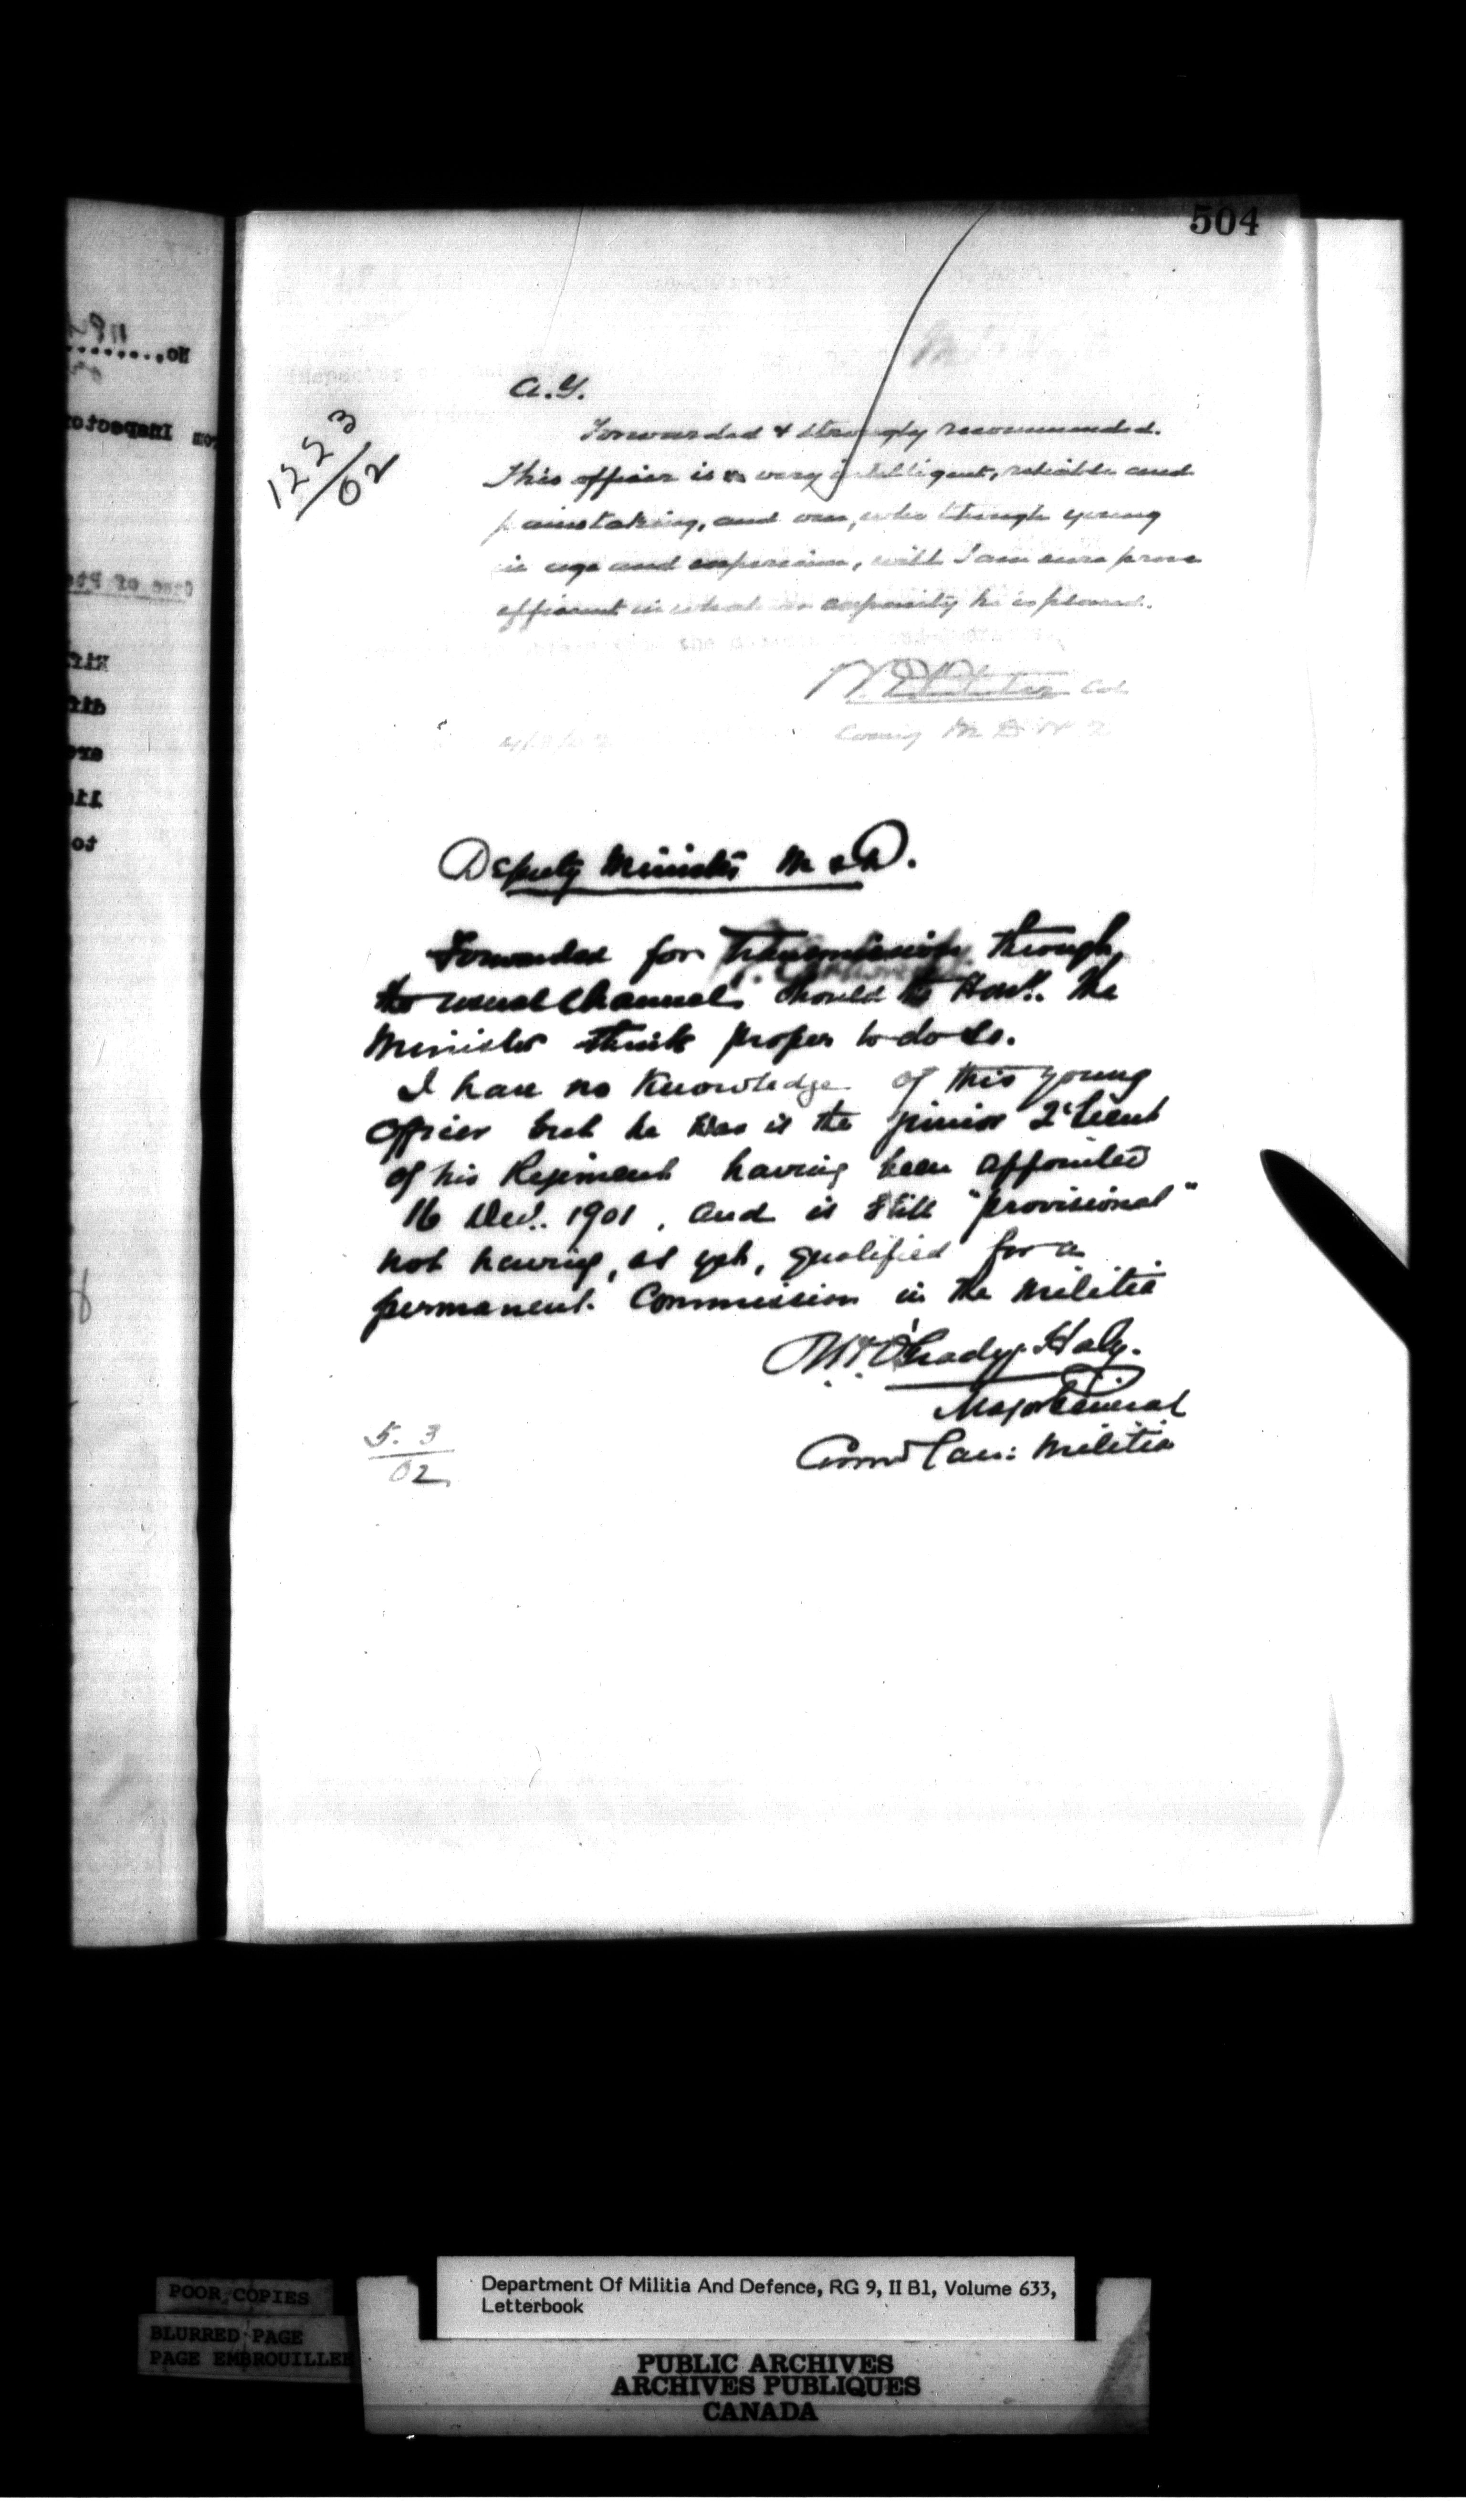 504
1223/02
A.G.
Forwarded & strongly recommended.
This officer is very intelligent, reliable and
painstaking, and one, who though young
in age and experience, will I am sure prove
efficient in whatever capacity he is placed.
Col
Comg M D No 2
Deputy Minister M & D.
Forwarded for transmission through
the usual Channel should the Honble. the
Minister think proper to do so.
I have no knowledge of this young
officer but he is the junior 2d Lieut
of his Regiment having been appointed
16 Decr. 1901, and is still "provisional"
not having, as yet, qualified for a
permanent Commission in the Militia
O'Grady Haly.
Major General
Comd Can: Militia
5.3
02
No.
Inspector
POOR COPIES
BLURRED PAGE
PAGE EMBROUILLEE
Department Of Militia And Defence, RG 9, II B1, Volume 633,
Letterbook
PUBLIC ARCHIVES
ARCHIVES PUBLIQUES
CANADA